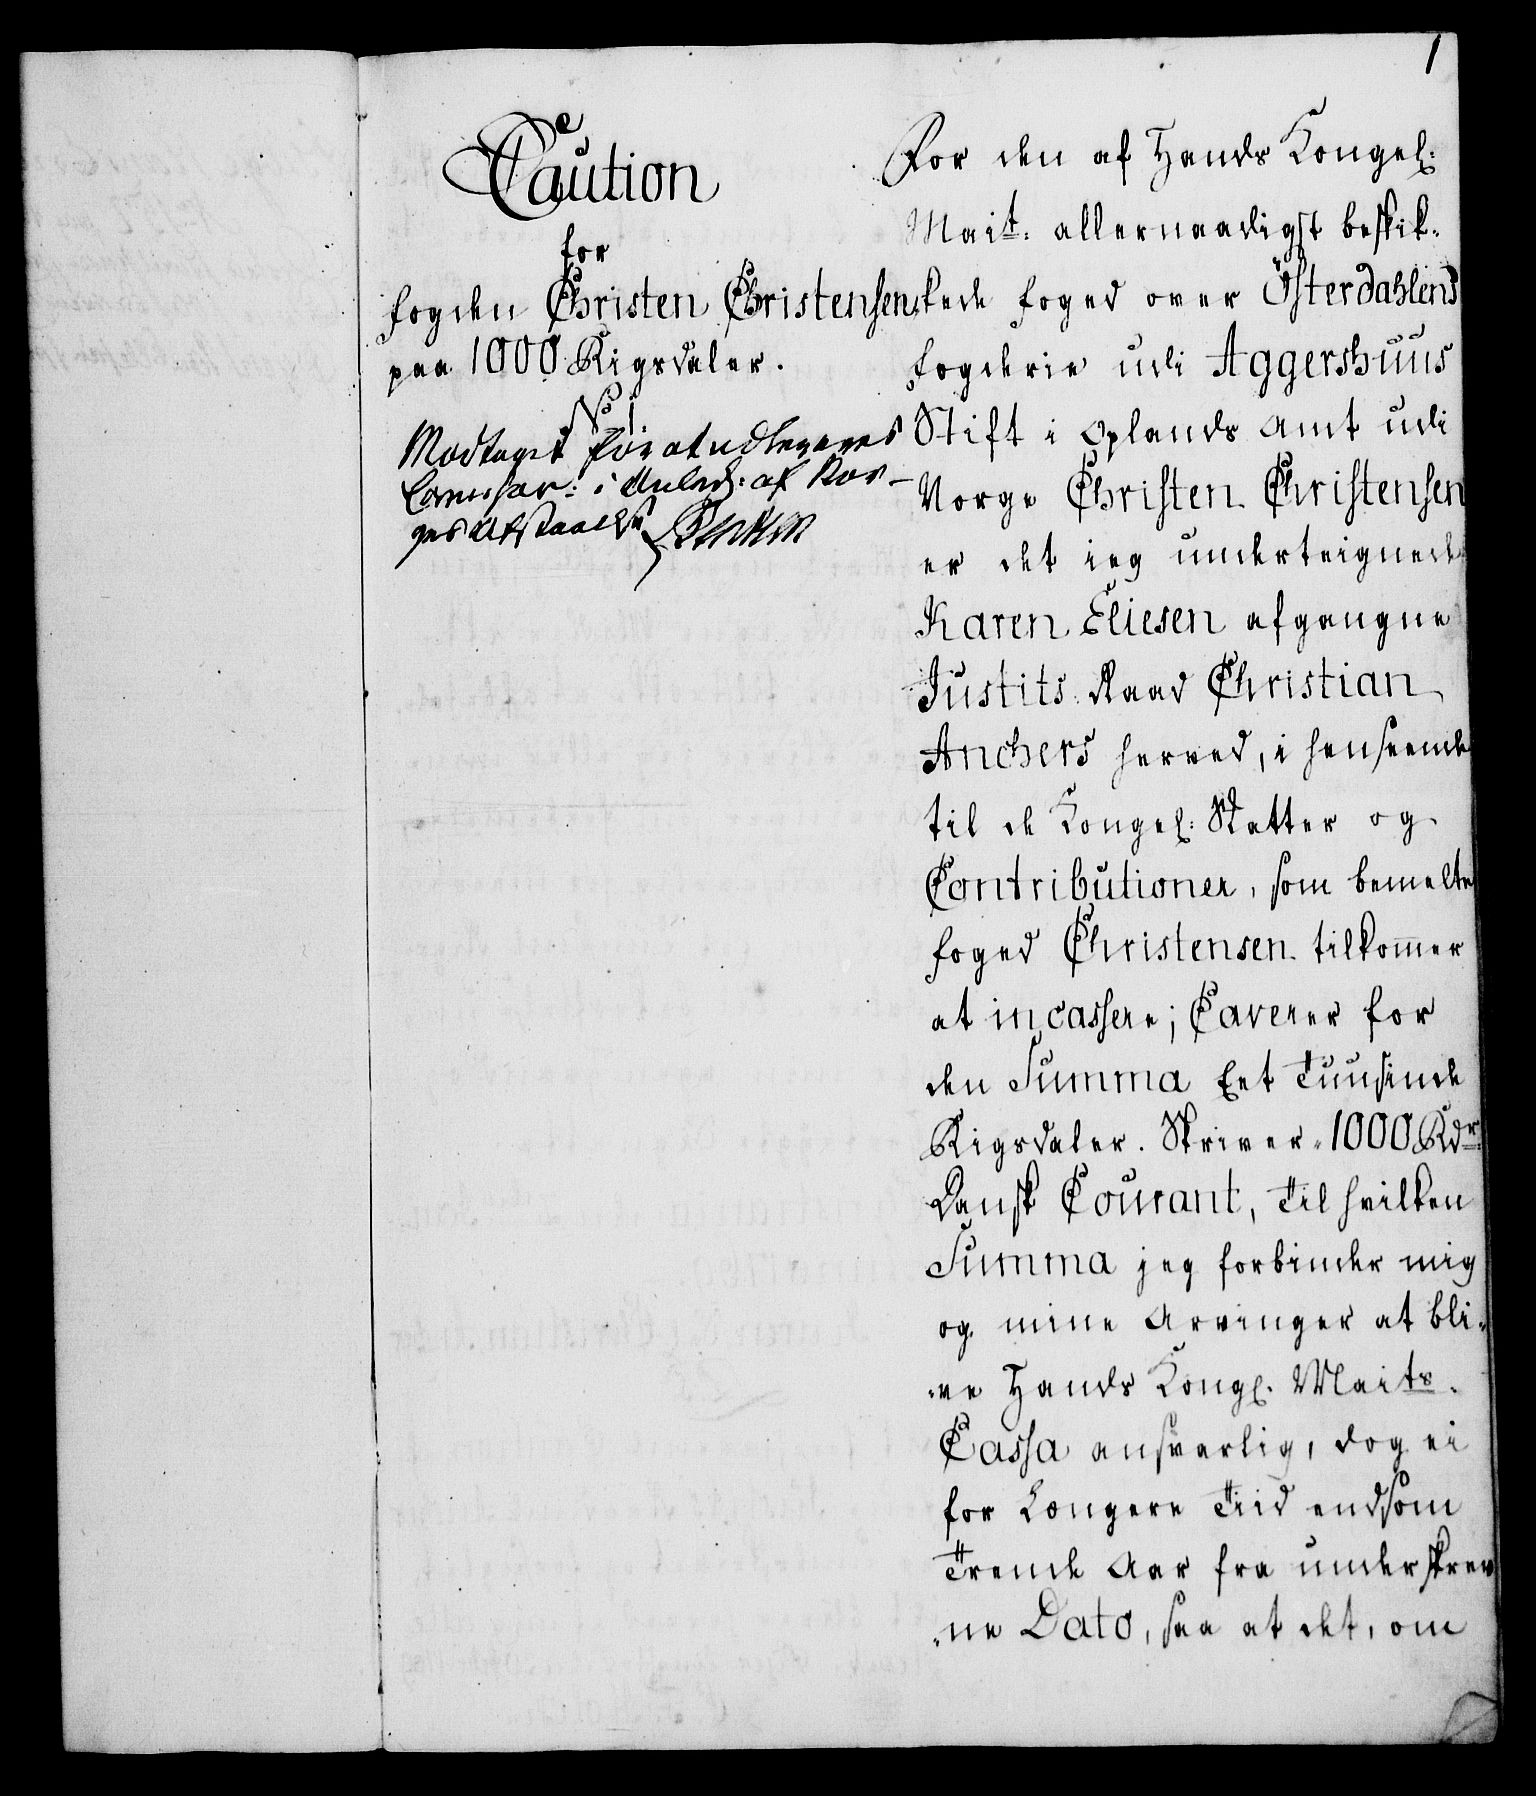 1
Caution
for
fogden Christen Christensen
paa 1000 Rigsdaler.
No 1
Modtaget for at udleveres
Commissar: i Anled: af Nor-
ges Afstaaelse
For den af Hands Kongel:
Mait: allernaadigst beskik-
kede foged over Österdahlens
fogderie udi Aggershuus
Stift i Oplands Amt udi
Norge Christen Christensen
er det ieg underteignede
Karen Eliesen afgangne
Justits Raad Christian
Anchers herved, i henseende
til de Kongel: Skatter og
Contributioner, som bemelte
foged Christensen tilkommer
at incassere; Caverer for
den Summa Eet Tuusinde
Rigsdaler. Skriver 1000 Rdr
Dansk Courant, til hvilken
Summa jeg forbinder mig
og mine Arvinger at bli-
ve Hands Kongl. Maits.
Cassa ansvarlig, dog ei
for Længere Tiid end som
Trende Aar fra underskrev
ne Dato, saa at det, om